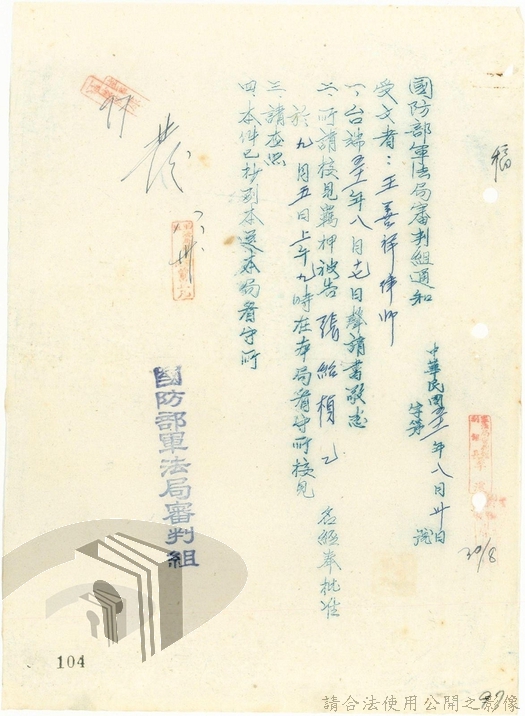 國防部軍法局審判組通知
中華民國五十一年八月卅日
字第　號
受文者：王善祥律師
一、台端五十一年八月十七日聲請書敬悉
二、所請接見羈押被告張紹楨乙名經奉批准
於九月五日上午九時在本局看守所接見
三、請查照
四、本件已抄副本送本局看守所
國防部軍法局審判組
30/8
104
請合法使用公開之影像